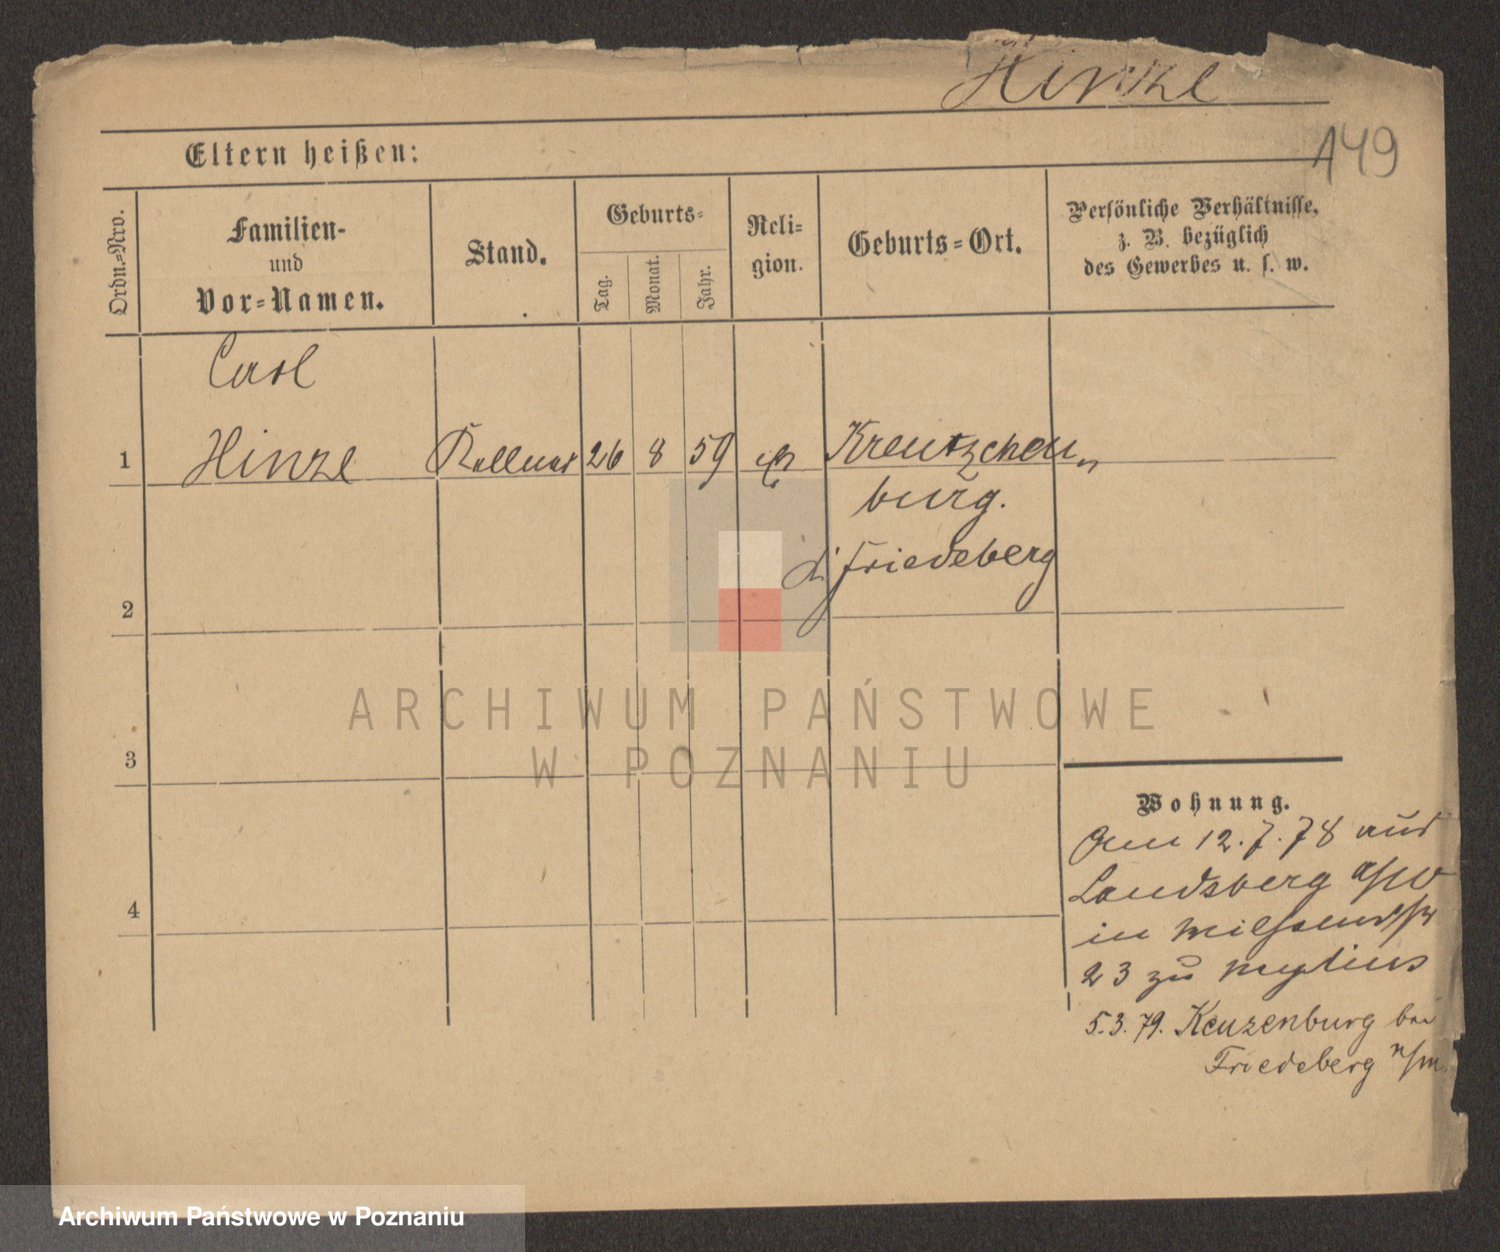 Hinze
149
Eltern heißen:
Ordn.-Nro.
Familien-
und
Vor-Namen.
Stand.
Geburts-
Tag.
Monat.
Jahr.
Reli-
gion.
Geburts-Ort.
Persönliche Verhältnisse,
z. B. bezüglich
des Gewerbes u. s. w.
Carl
1
Hinze
Kellner
26
8
59
Kreutzchen
burg.
Friedeberg
2
3
4
Wohnung.
12.7.78 aus
Landsberg a/W
in
23 zu Mylius
5.3.79. Keuzenburg bei
Friedeberg n/m.
ARCHIWUM PAŃSTWOWE
W POZNANIU
Archiwum Państwowe w Poznaniu